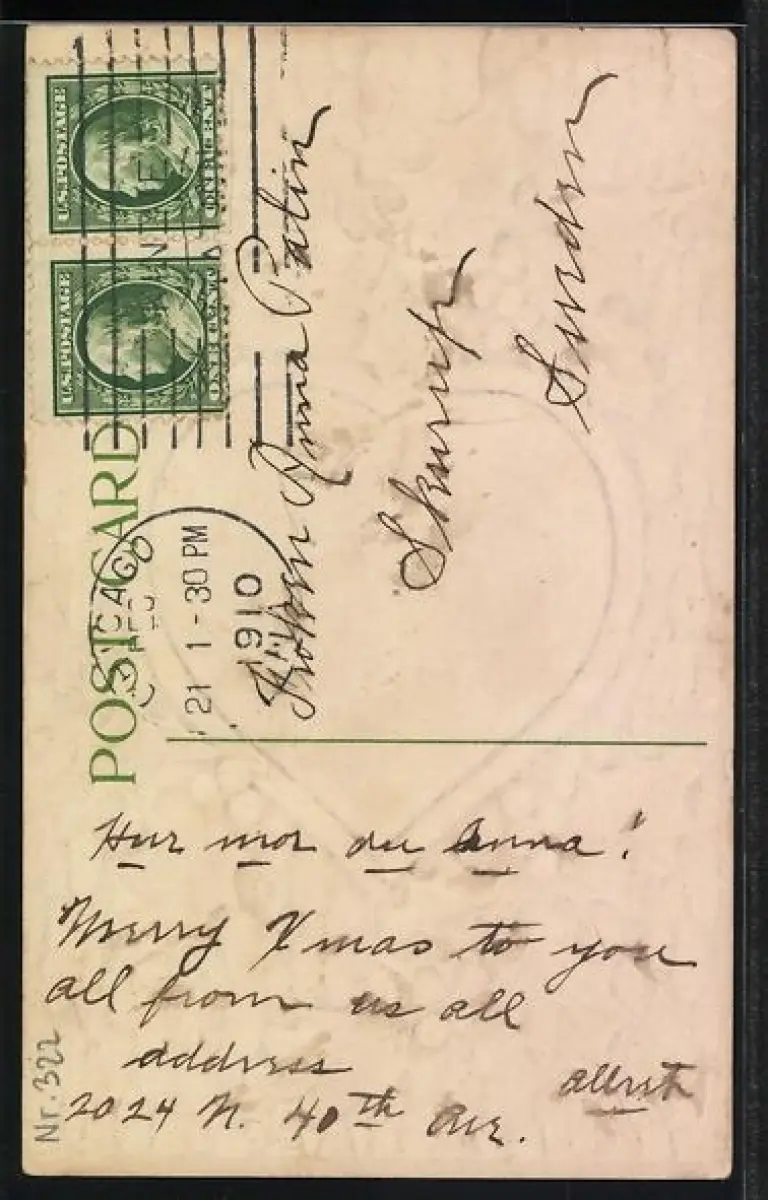 POST CARD
U.S. POSTAGE
ONE CENT
U.S. POSTAGE
ONE CENT
CHICAGO
21 1-30 PM
1910
ILL.
Fröken Anna Palin
Skurup
Sweden
Hur mor du Anna!
Merry Xmas to you
all from us all
address
2024 N. 40th Ave.
Nr. 322